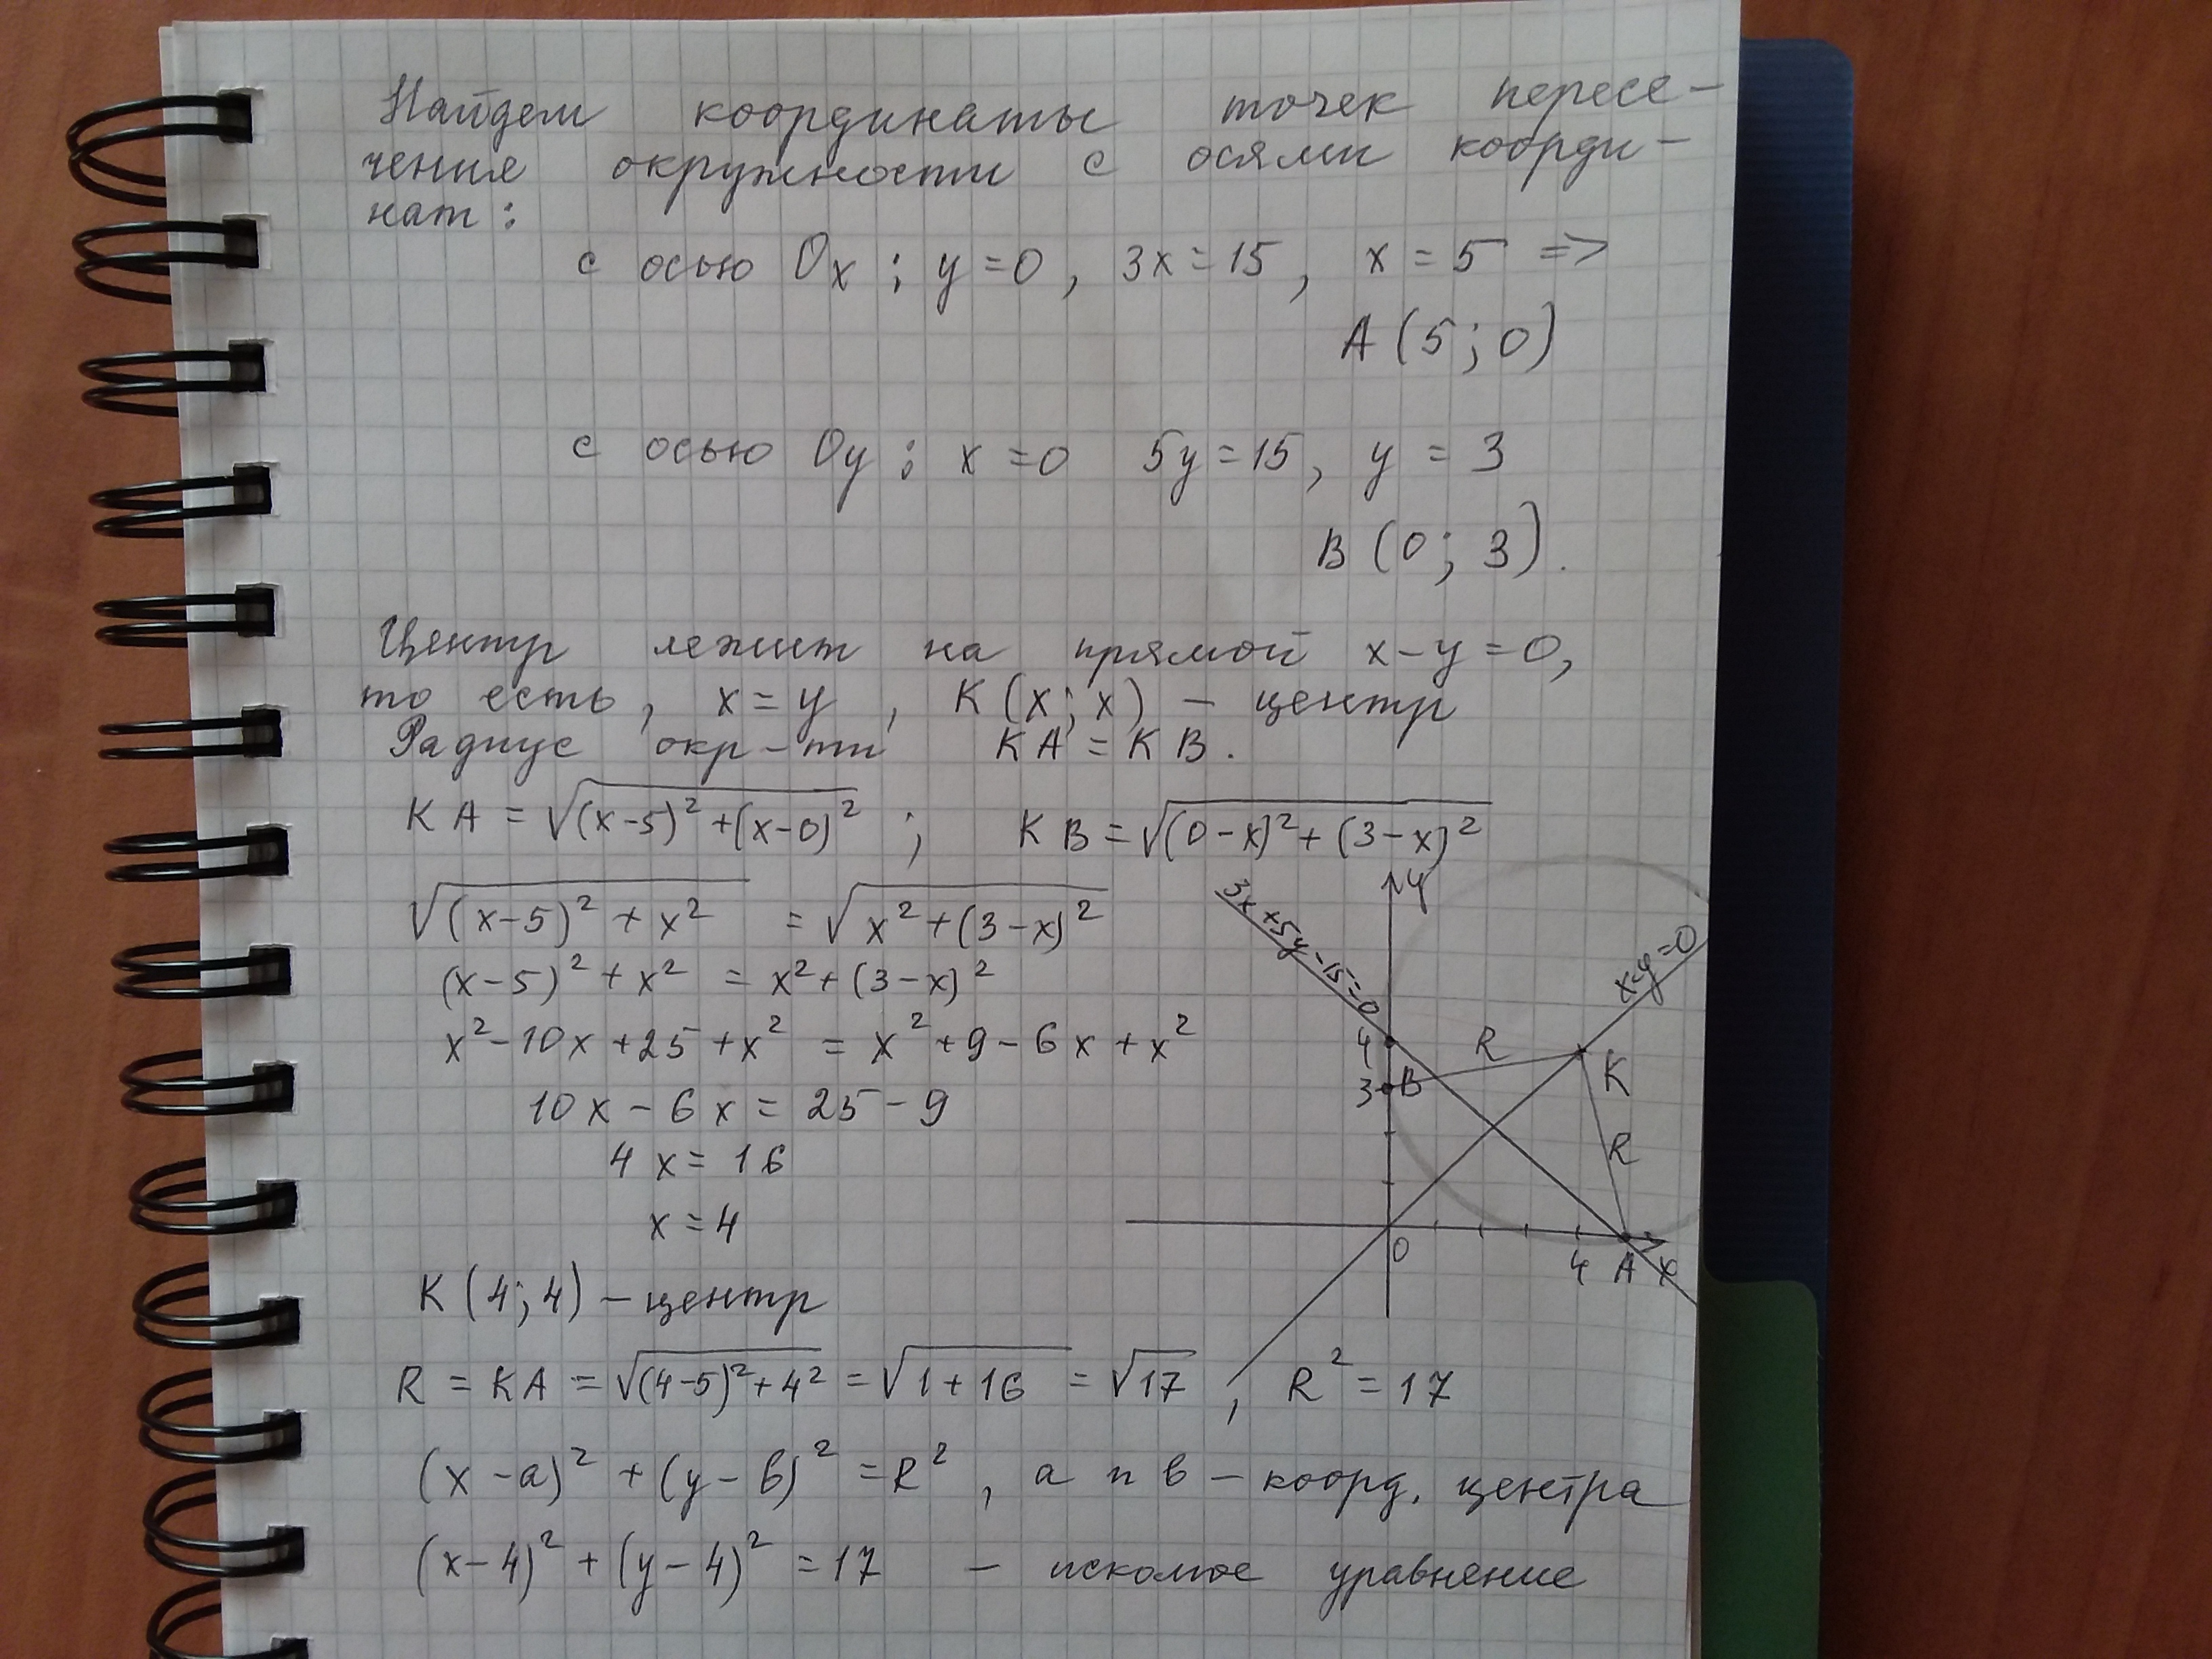 Найдем координаты точек пересе-
чения окружности с осями коорди-
нат:
с осью Ox; y=0, 3x=15, x=5 =>
A(5;0)
с осью Oy; x=0 5y=15, y=3
B(0; 3).
Центр лежит на прямой x-y=0,
то есть, x=y, K(x;x) – центр
Радиус окр-ти KA=KB.
KA = √((x-5)²+(x-0)²) ; KB=√((0-x)²+(3-x)²)
√((x-5)²+x²) = √(x²+(3-x)²)
(x-5)²+x² = x²+(3-x)²
x²-10x+25+x² = x²+9-6x+x²
10x-6x=25-9
4x=16
x=4
y
3x+5y-15=0
x-y=0
4
R
K
3 B
R
0
4 A x
K(4;4) – центр
R = KA = √((4-5)²+4²) = √(1+16) = √17, R²=17
(x-a)²+(y-b)²=R², a и b – коорд. центра
(x-4)²+(y-4)²=17 – искомое уравнение